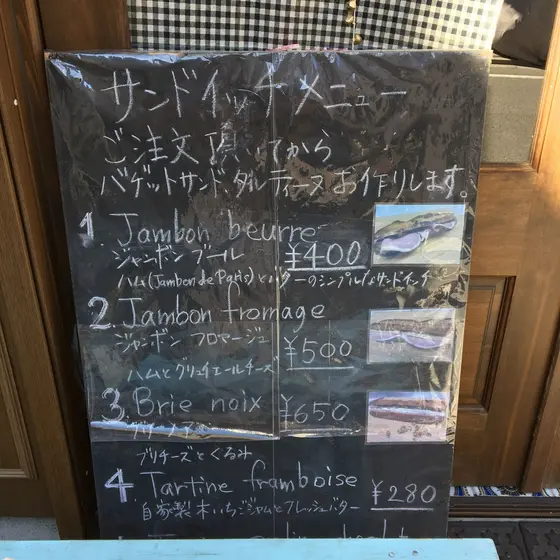 サンドイッチメニュー
ご注文頂いてから
バゲットサンド タルティーヌ お作りします。
1 Jambon beurre
ジャンボンブール ¥400
ハム(Jambon de Paris)とバターのシンプルなサンドイッチ
2. Jambon fromage
ジャンボン フロマージュ ¥500
ハムとグリュイエールチーズ
3. Brie noix ¥650
ブリーチーズとくるみ
4 Tartine framboise ¥280
自家製木いちごジャムとフレッシュバター